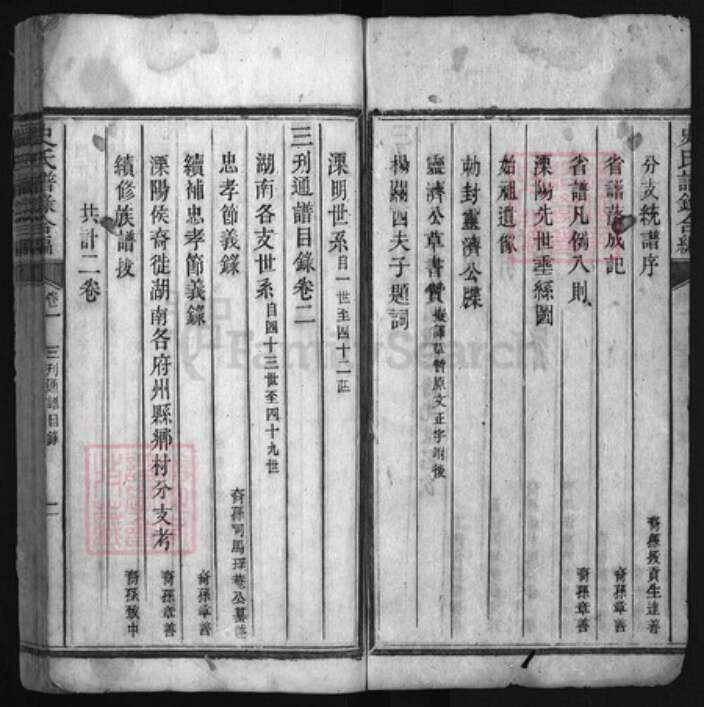 史氏譜錄合編
分支統譜序 裔孫拔貢生達善
省譜落成記 裔孫章善
省譜凡例八則 裔孫章善
溧陽先世垂絲圖
始祖遺像
勅封靈濟公牒
靈濟公草書贊 草贊原文正字附後
楊關四夫子題詞
溧明世系 自一世至四十二世
三刋通譜目錄卷二
湖南各支世系 自四十三世至四十九世
忠孝節義錄 裔孫司馬 公
續補忠孝節義錄 裔孫章善
溧陽侯裔徙湖南各府州縣鄉村分支考 裔孫章善
續修族譜拔 裔孫致中
共計二卷
史氏譜錄合編 卷一 三刋通譜目錄
FamilySearch